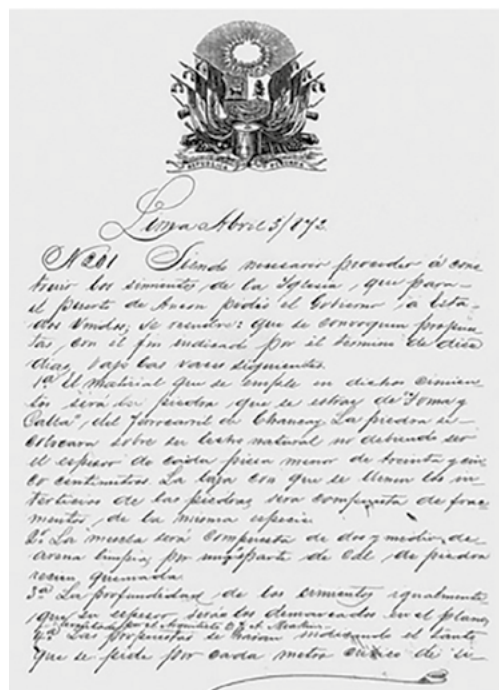 REPUBLICA PERUANA
Lima Abril 5/872
N 201 Siendo necesario proceder á cons
truir los simientos de la Iglesia, que para
el Puerto de Ancon pidió el Gobierno á Esta-
dos Unidos; Se resuelve: que se convoquen propues
tas, con el fin indicado por el término de diez
dias, bajo las vaces siguientes.
1ª El material que se emplee en dichos cimien
tos será la piedra que se estrae de "Toma y
Calla" del Ferrocarril de Chancay. La piedra se
colocara sobre su lecho natural no debiendo ser
el espesor de caida piesa menor de treinta y cin
co centimitros. La laja con que se llenen los in
terticios de las piedras, sera compuesta de frac
mentos, de la misma especie.
2ª La mescla será compuesta de dos y media de
arena limpia, por una parte de cal de piedra
recien quemada
3ª La profundidad de los cimientos igualmente
que su espesor, seria los demarcados en el plano,
por el Arquitecto
4ª Las propuestas se haran indicando el tanto
que se pide por cada metro cubico de si-